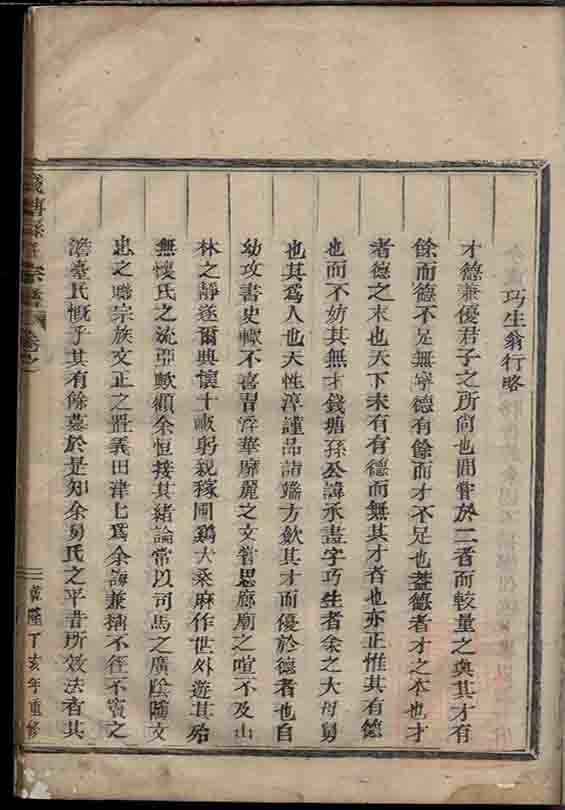 巧生翁行略
才德兼優君子之所尚也間嘗於二者而較量之與其才有
餘而德不足無寧德有餘而才不足也蓋德者才之本也才
者德之末也天下未有有德而無其才者也亦正惟其有德
也而不妨其無才錢塘孫公諱承晝字巧生者余之大母舅
也其爲人也天性淳謹品詣端方歛其才而優於德者也自
幼攻書史輙不喜習浮華靡麗之文嘗思廊廟之喧不及山
林之靜遂爾興懷十畝躬親稼圃鷄犬桑麻作世外遊其殆
無懷氏之流亞歟顧余恒接其緒論常以司馬之廣陰隲文
忠之聯宗族文正之置義田津七爲余誨兼擂不徑不竇之
澹臺氏慨乎其有餘慕於是知余舅氏之平昔所效法者其
錢塘孫 宗譜 卷之
乾隆丁亥年重修